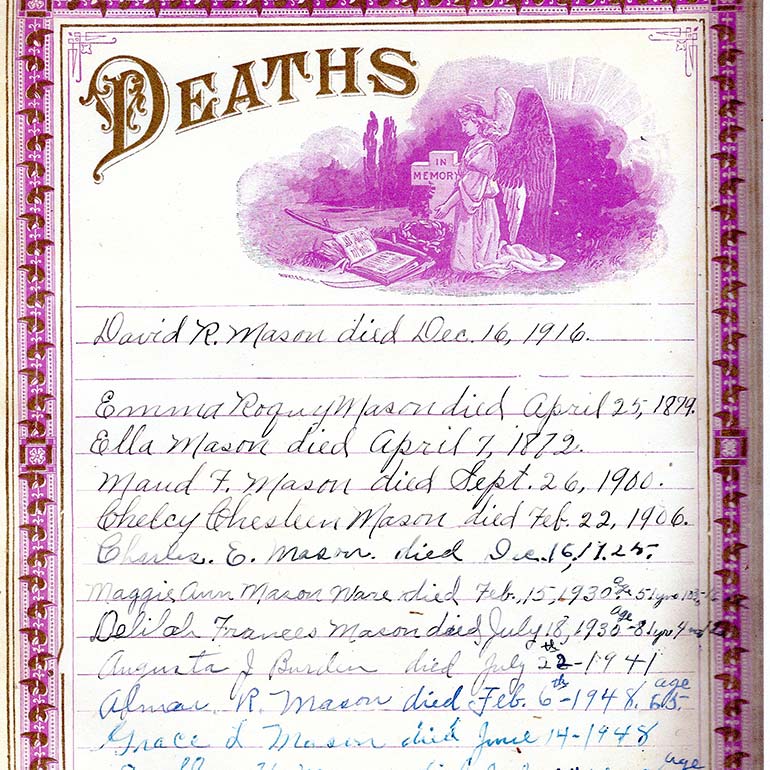 DEATHS
IN
MEMORY
David R. Mason died Dec. 16, 1916.
Emma Roquy Mason died April 25, 1879.
Ella Mason died April 7, 1872.
Maud F. Mason died Sept. 26, 1900.
Chelcy Chesleen Mason died Feb. 22, 1906.
Charles. E. Mason. died Dec. 16, 1925.
Maggie Ann Mason Ware died Feb., 15, 1930 age 51 yrs
Delilah Frances Mason died July 18, 1930 age 81 yrs 4
Augusta J Burden died July 22th - 1941
R. Mason died Feb. 6th - 1948. age 65.
Grace L Mason died June 14 - 1948
age